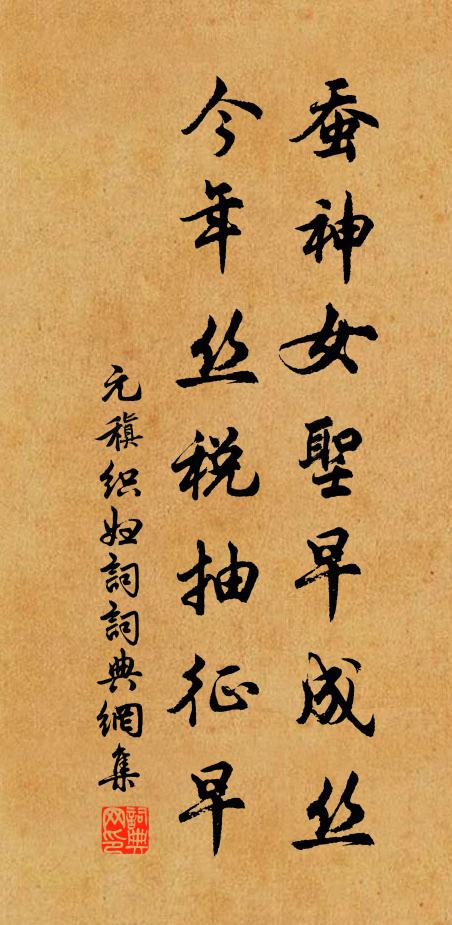 蚕神女聖早成丝
今年丝税抽征早
元稹织妇詞詞典網集
詞典网印